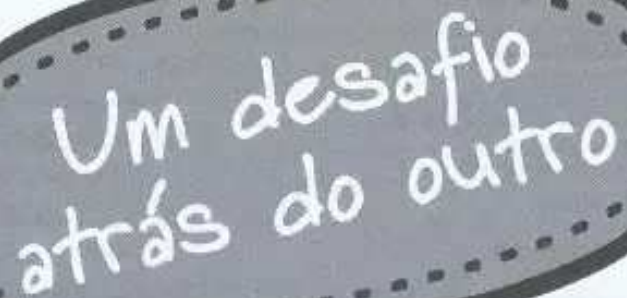 Um desafio
atrás do outro